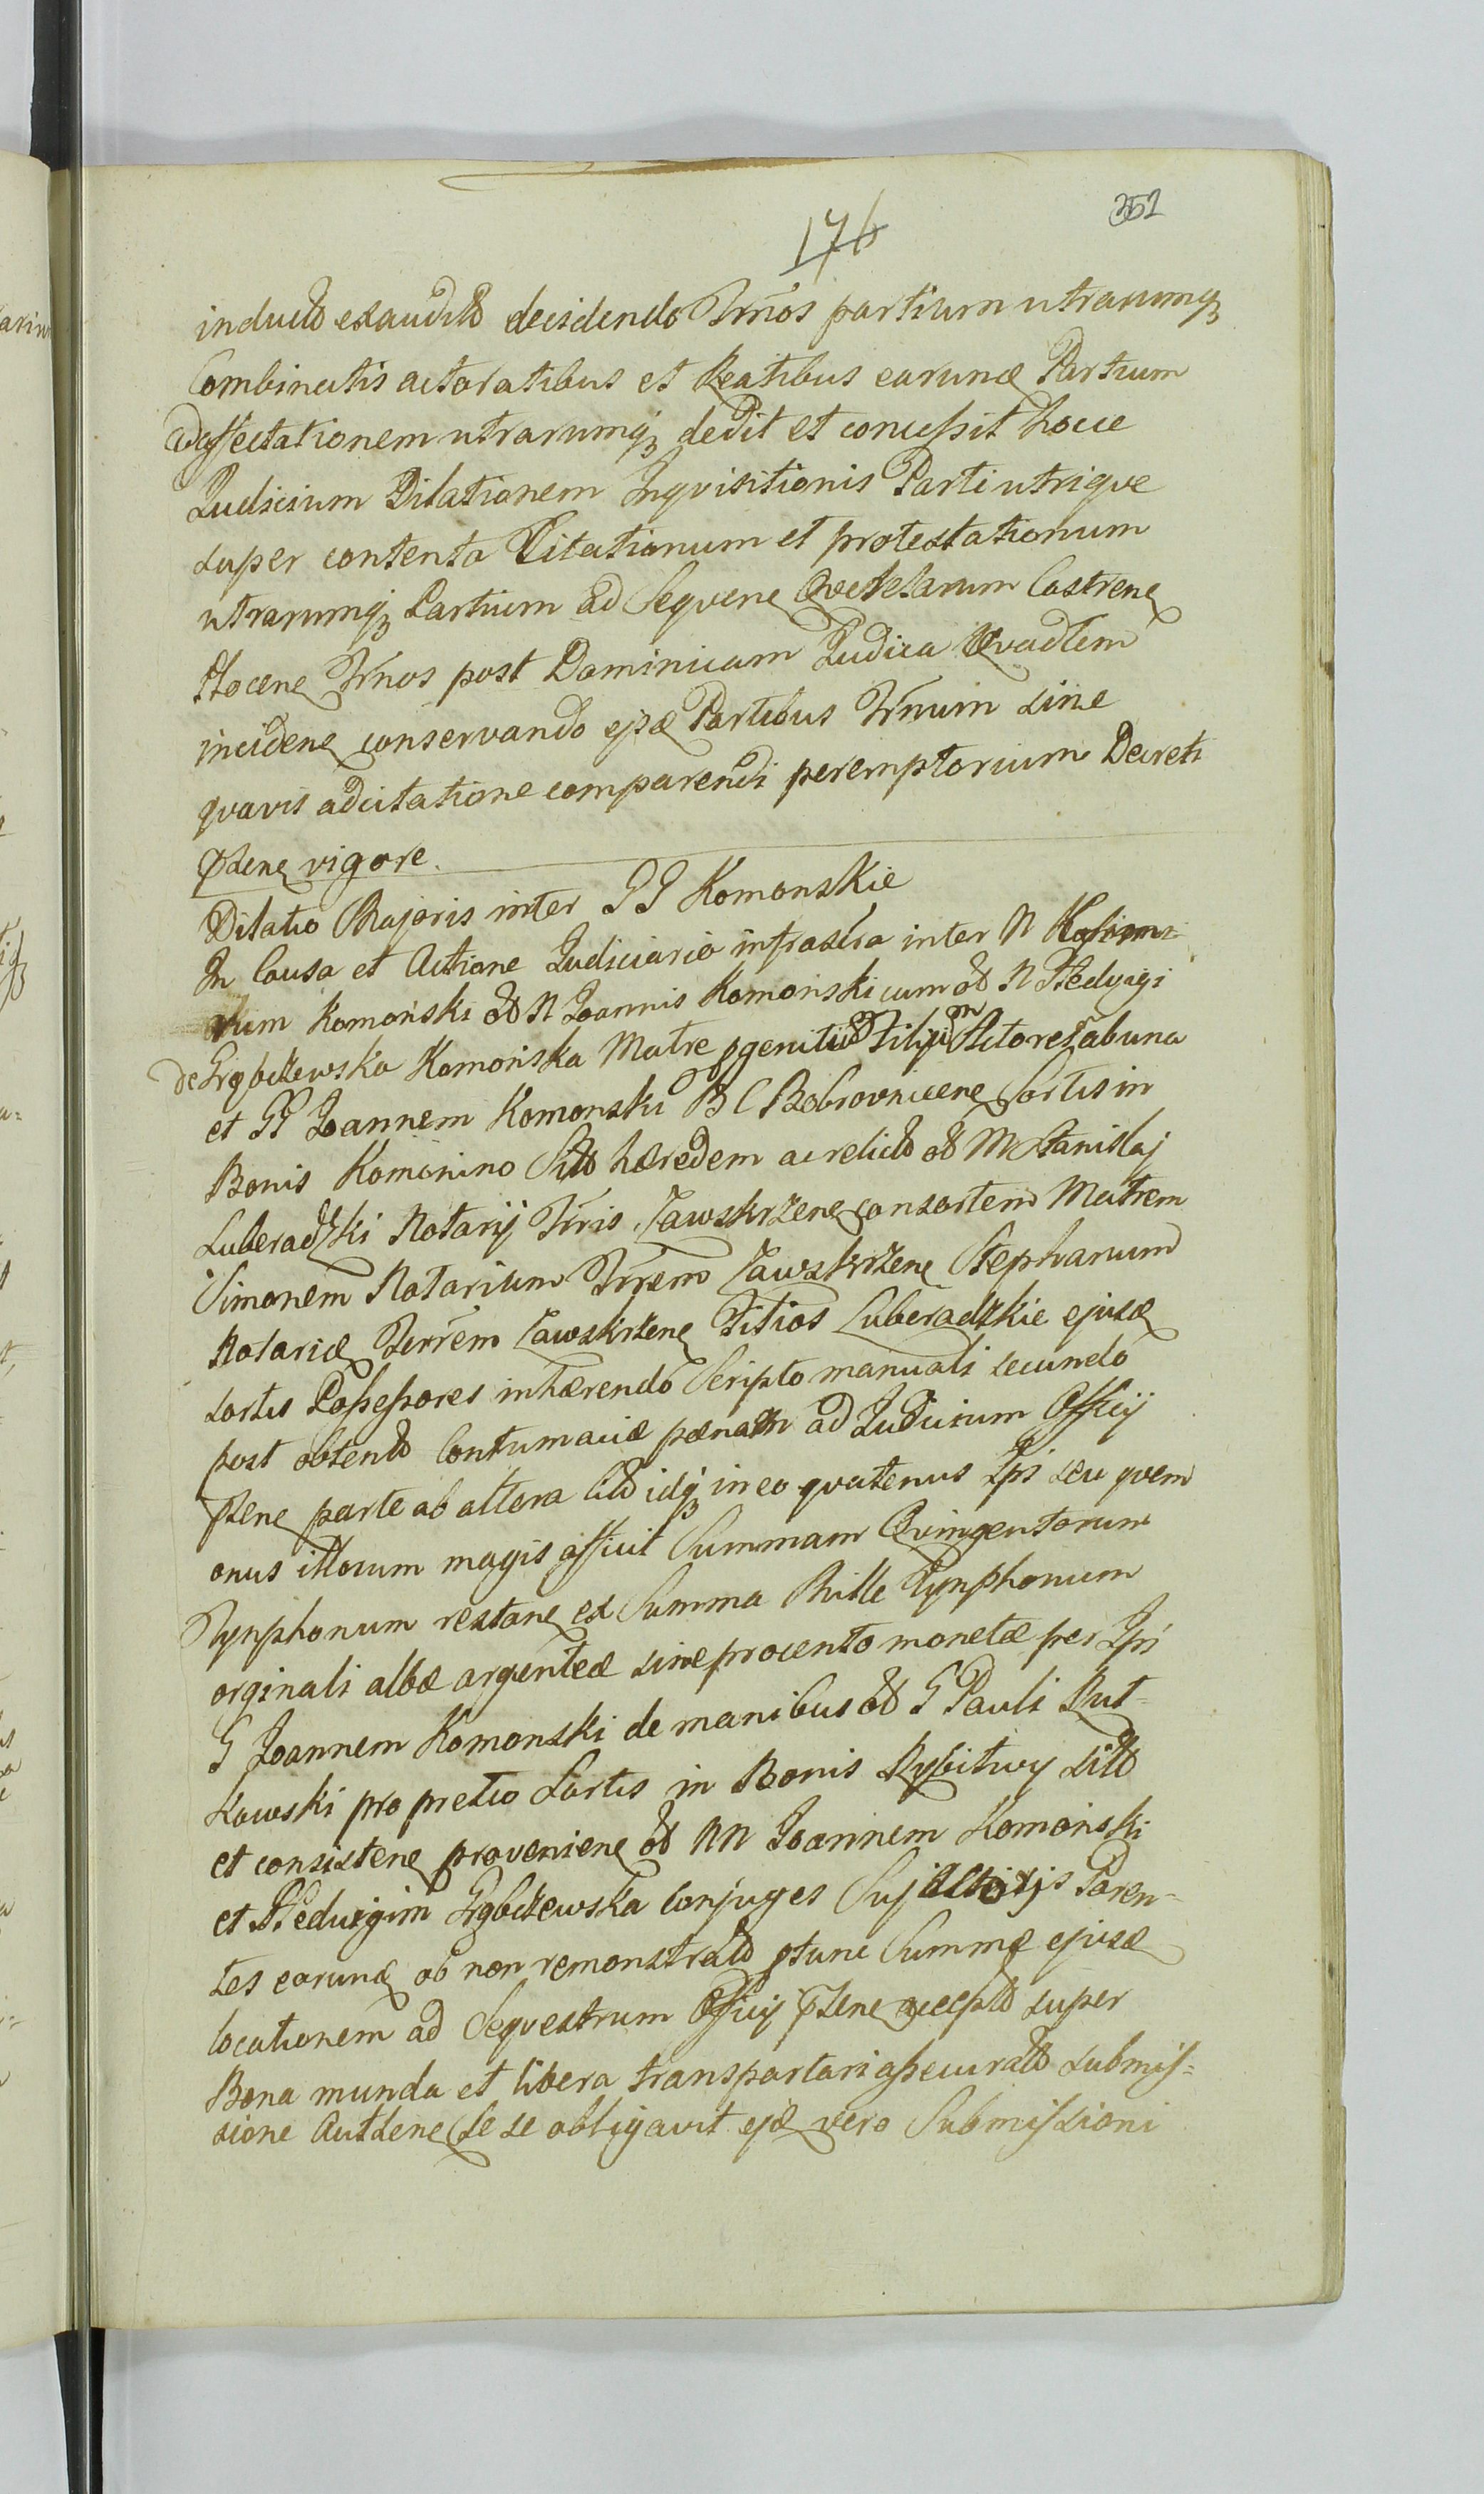 351
176
inducto exaudito decidendo Trños partium utrarumq3
Combinatis actoratibus et Reatibus earund Partium
adaffectationem utrarumq3 dedit et concessit hocce
Judicium Dilationem Inqvisitionis Parti utriqve
super contenta Citationum et protestationum
utrarumq3 Partium ad Seqvene Qverelarum Castrene
Plocene Trños post Dominicam Judica
incidene conservando ejsd Partibus Trñum sine
qvavis adcitatione comparendi peremptorium Decreti
pñsene vigore.
Dilatio Majoris inter GG Komonskie
In Causa et Actione Judiciario infrascra inter N
Komoński od N Joannis Komoński cum od N Hedvigi
de Grąbczewska Komońska Matre pgenitum Filium
et GG Joannem Komonski B C Bobrovnicene Sortis in
Bonis Komonino Sito hæredem ac relicto od M Stanislaj
Luberadzki Notarij Trris Zawskrzene consortem Matrem
Simonem Notarium Trrem Zawskrzene Stephanum
Notarid Terrem Zawskrzene Filios Luberadzkie ejusd
sortis Possessores inhærendo Scripto manuali secundo
post obtento Contumaciæ pænam ad Judicium Officij
pñsene parte ab altera Cito idq3 in eo qvatenus Ipsi seu qvem
onus illorum magis afficit Summam Qvingentorum
Tynphonum restane ex Summa Mille Tynphonum
orginali albæ argenteæ sine procento monetæ per Ipsi
G Joannem Komonski de manibus od G Pauli Rut-
kowski pro pretio Sortis in Bonis Rybitwy sito
et consistene proveniene od NN Joannem Komoński
et Hedvigim Grąbczewska Conjuges Suj Actoris Paren-
tes earund ob non remonstrato ptunc Summæ ejusd
locationem ad Seqvestrum Officij pñsene accepto super
Bona munda et libera transportari assecurato submis=
sione Autsene se se obligavit ejsd vero Submissioni